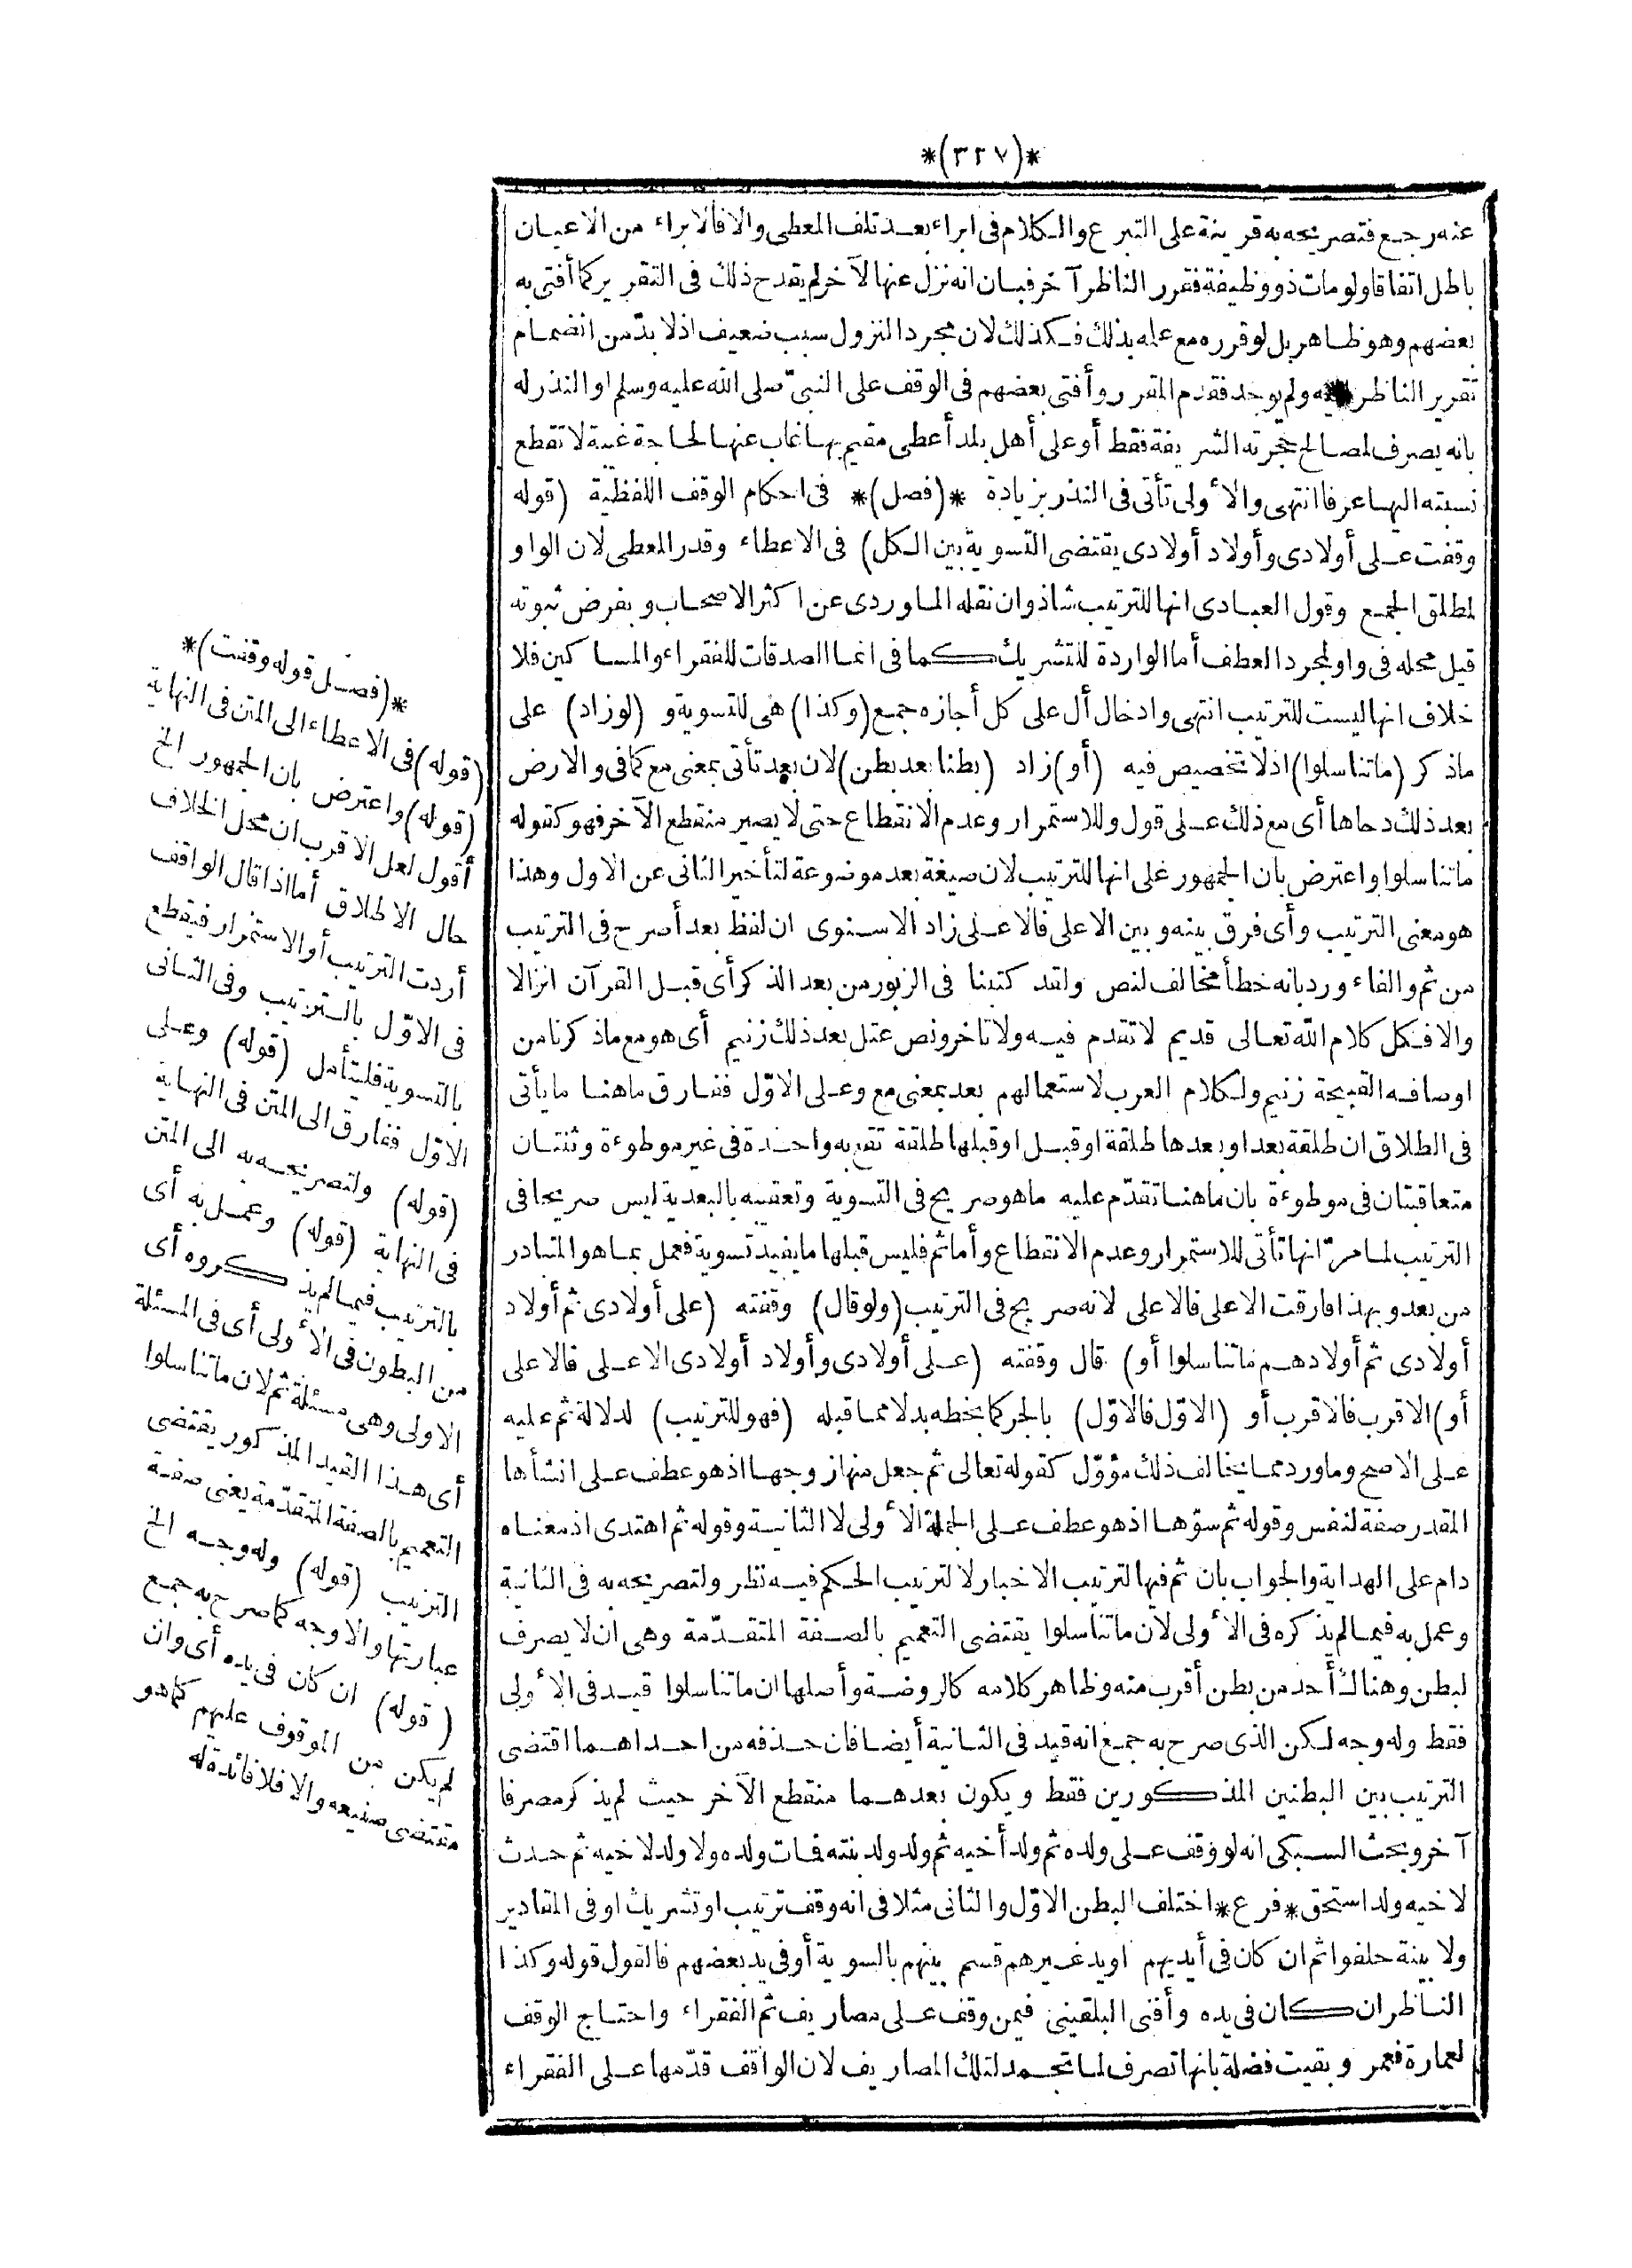 *(٣٢٧)*
عنه رجع فتصريحه به قرينة على التبرع والكلام فى ابراء بعد تلف المعطى والا فالابراء من الاعيان
باطل اتفاقا ولو مات ذو وظيفة فقرر الناظر آخر فبان انه نزل عنها لآخر لم يقدح ذلك فى التقرير كما أفتى به
بعضهم وهو ظاهر بل لو قرره مع علمه بذلك فكذلك لان مجرد النزول سبب ضعيف اذ لا بدّ من انضمام
تقرير الناظر ولم يوجد فقدم المقرر وأفتى بعضهم فى الوقف على النبىّ صلى الله عليه وسلم او النذر له
بانه يصرف لمصالح حجرته الشريفة فقط أو على أهل بلد أعطى مقيم بها غاب عنها لحاجة غيبة لا تقطع
نسبته اليها عرفا انتهى والأولى تأتى فى النذر بزيادة *(فصل)* فى احكام الوقف اللفظية (قوله
وقفت على أولادى وأولاد أولادى يقتضى التسوية بين الكل) فى الاعطاء وقدر المعطى لان الواو
لمطلق الجمع وقول العبادى انها للترتيب شاذ وان نقله الماوردى عن اكثر الاصحاب وبفرض ثبوته
قيل محله فى واو لمجرد العطف أما الواردة للتشريك كما فى انما الصدقات للفقراء والمساكين فلا
خلاف انها ليست للترتيب انتهى وادخال أل على كل أجازه جمع (وكذا) هى للتسوية و (لو زاد) على
ماذكر (ماتناسلوا) اذ لا تخصيص فيه (أو) زاد (بطنا بعد بطن) لان بعد تأتى بمعنى مع كما فى والارض
بعد ذلك دحاها أى مع ذلك على قول وللاستمرار وعدم الانقطاع حتى لا يصير منقطع الآخر فهو كقوله
ماتناسلوا واعترض بان الجمهور على انها للترتيب لان صيغة بعد موضوعة لتأخير الثانى عن الاول وهذا
هو معنى الترتيب وأى فرق بينه وبين الاعلى فالاعلى زاد الاسنوى ان لفظ بعد أصرح فى الترتيب
من ثم والفاء ورد بانه خطأ مخالف لنص ولقد كتبنا فى الزبور من بعد الذكر أى قبل القرآن انزالا
والا فكل كلام الله تعالى قديم لا تقدم فيه ولا تاخر ونص عتل بعد ذلك زنيم أى هو مع ماذكرنا من
اوصافه القبيحة زنيم ولكلام العرب لاستعمالهم بعد بمعنى مع وعلى الاوّل ففارق ماهنا ما يأتى
فى الطلاق ان طلقة بعد او بعدها طلقة او قبل او قبلها طلقة تقع به واحدة فى غير موطوءة وثنتان
متعاقبتان فى موطوءة بان ماهنا تقدّم عليه ماهو صريح فى التسوية وتعقيبه بالبعدية ليس صريحا فى
الترتيب لما مرّ انها تأتى للاستمرار وعدم الانقطاع وأما ثم فليس قبلها ما يفيد تسوية فعمل بما هو المتبادر
من بعد وبهذا فارقت الاعلى فالاعلى لانه صريح فى الترتيب (ولو قال) وقفته (على أولادى ثم أولاد
أولادى ثم أولادهم ماتناسلوا أو) قال وقفته (على أولادى وأولاد أولادى الاعلى فالاعلى
أو) الاقرب فالاقرب أو (الاوّل فالاوّل) بالجر كما بخطه بدلا مما قبله (فهو للترتيب) لدلالة ثم عليه
على الاصح وماورد مما يخالف ذلك مؤوّل كقوله تعالى ثم جعل منها زوجها اذ هو عطف على انشأها
المقدر صفة لنفس وقوله ثم سوّها اذ هو عطف على الجملة الأولى لا الثانية وقوله ثم اهتدى اذ معناه
دام على الهداية والجواب بان ثم فيها لترتيب الاخبار لا لترتيب الحكم فيه نظر ولتصريحه به فى الثانية
وعمل به فيما لم يذكره فى الأولى لان ماتناسلوا يقتضى التعميم بالصفة المتقدّمة وهى ان لا يصرف
لبطن وهناك أحد من بطن أقرب منه وظاهر كلامه كالروضة وأصلها ان ماتناسلوا قيد فى الأولى
فقط وله وجه لكن الذى صرح به جمع انه قيد فى الثانية أيضا فان حذفه من احداهما اقتضى
الترتيب بين البطنين المذكورين فقط ويكون بعدهما منقطع الآخر حيث لم يذكر مصرفا
آخر وبحث السبكى انه لو وقف على ولده ثم ولد أخيه ثم ولد ولد بنته فمات ولده ولا ولد لاخيه ثم حدث
لاخيه ولد استحق *فرع* اختلف البطن الاوّل والثانى مثلا فى انه وقف ترتيب او تشريك او فى المقادير
ولا بينة حلفوا ثم ان كان فى أيديهم او يد غيرهم قسم بينهم بالسوية أو فى يد بعضهم فالقول قوله وكذا
الناظر ان كان فى يده وأفتى البلقينى فيمن وقف على مصاريف ثم الفقراء واحتاج الوقف
لعمارة فعمر وبقيت فضلة بانها تصرف لما تجمد لتلك المصاريف لان الواقف قدّمها على الفقراء
*(فصل قوله وقفت)*
(قوله) فى الاعطاء الى المتن فى النهاية
(قوله) واعترض بان الجمهور الخ
أقول لعل الاقرب ان محل الخلاف
حال الاطلاق أما اذا قال الواقف
أردت الترتيب أو الاستمرار فيقطع
فى الاوّل بالترتيب وفى الثانى
بالتسوية فليتأمل (قوله) وعلى
الاوّل ففارق الى المتن فى النهاية
(قوله) ولتصريحه به الى المتن
فى النهاية (قوله) وعمل به أى
بالترتيب فيما لم يذكروه أى
من البطون فى الأولى أى فى المسئلة
الاولى وهى مسئلة ثم لان ماتناسلوا
أى هذا القيد المذكور يقتضى
التعميم بالصفة المتقدّمة يعنى صفة
الترتيب (قوله) وله وجه الخ
عبارتها والاوجه كما صرح به جمع
(قوله) ان كان فى يده أى وان
لم يكن من الموقوف عليهم كما هو
مقتضى صنيعه والا فلا فائدة له